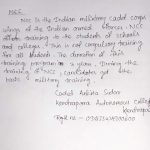 NCC
NCC is the Indian military cadet corps
wings of the Indian armed forces. NCC
offers training to the students of schools
and colleges. This is not compulsory training
for all students. The duration of this
training program is 3 years. During the
training of NCC, candidates get the
basic military training
Cadet Ankita
Kendrapara Autonomous College
Kendrapara
Regd no -